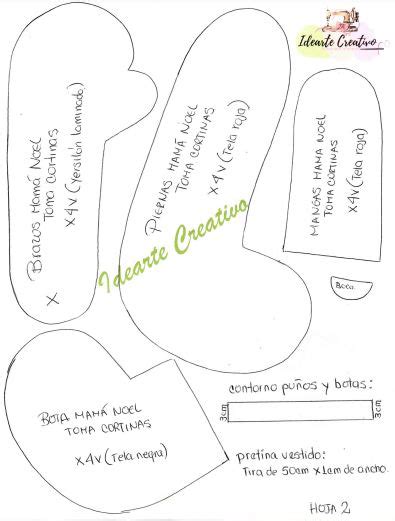 Idearte Creativo
Brazos Mamá Noel
Toma Cortinas
x4v (Yersilón laminado)
X
PIERNAS MAMÁ NOEL
TOMA CORTINAS
x4v (Tela roja)
MANGAS MAMÁ NOEL
TOMA CORTINAS
x4v (Tela roja)
Boca
Idearte Creativo
BOTA MAMÁ NOEL
TOMA CORTINAS
x4v (Tela negra)
contorno puños y botas:
3cm
3cm
pretina vestido:
Tira de 50cm x 1cm de ancho.
HOJA 2